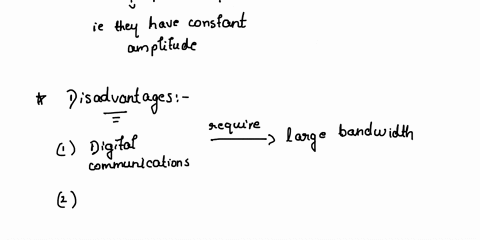 ie they have constant
amplitude
* Disadvantages:-
(1) Digital communications require large bandwidth
(2)